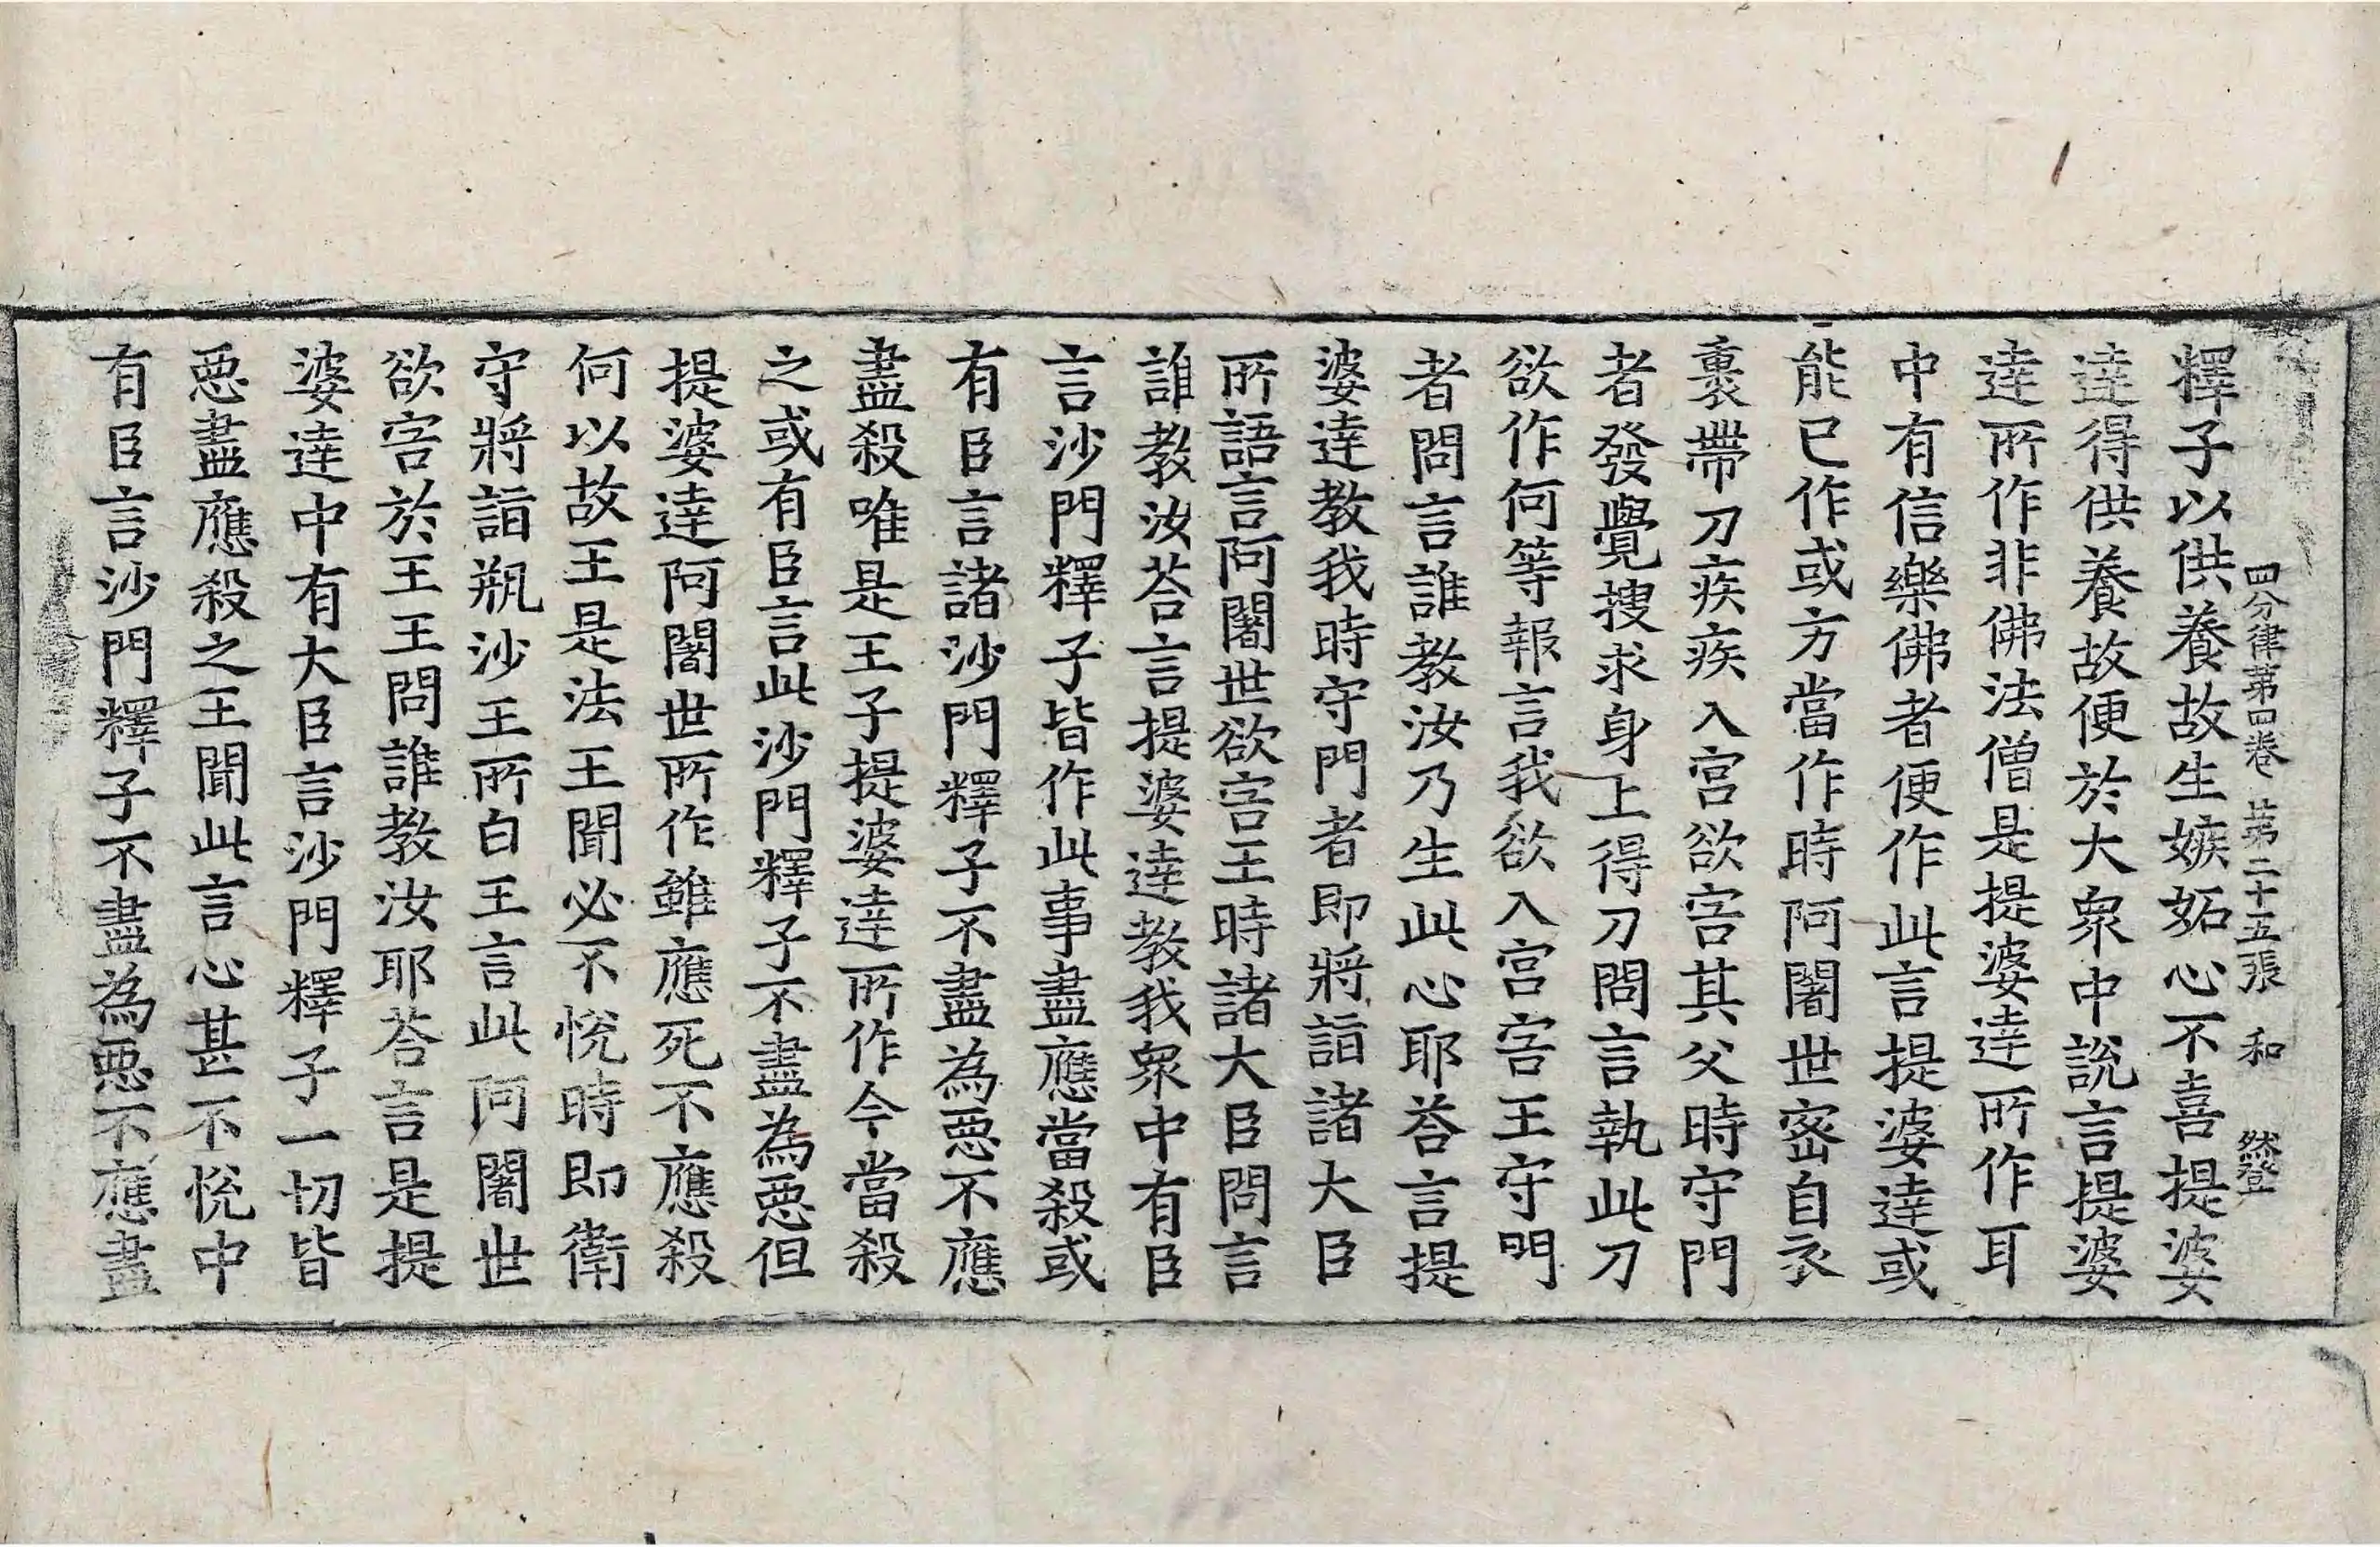 四分律第四卷 苐二十五張 和 然登
釋子以供養故生嫉妬心不喜提婆
達得供養故便於大衆中說言提婆
達所作非佛法僧是提婆達所作耳
中有信樂佛者便作此言提婆達或
能已作或方當作時阿闍世密自衣
裏帶刀疾疾入宮欲害其父時守門
者發覺搜求身上得刀問言執此刀
欲作何等報言我欲入宮害王守門
者問言誰教汝乃生此心耶荅言提
婆達教我時守門者即將詣諸大臣
所語言阿闍世欲害王時諸大臣問言
誰教汝荅言提婆達教我衆中有臣
言沙門釋子皆作此事盡應當殺或
有臣言諸沙門釋子不盡為惡不應
盡殺唯是王子提婆達所作今當殺
之或有臣言此沙門釋子不盡為惡但
提婆達阿闍世所作雖應死不應殺
何以故王是法王聞必不悅時即衛
守將詣瓶沙王所白王言此阿闍世
欲害於王王問誰教汝耶荅言是提
婆達中有大臣言沙門釋子一切皆
惡盡應殺之王聞此言心甚不悅中
有臣言沙門釋子不盡為惡不應盡